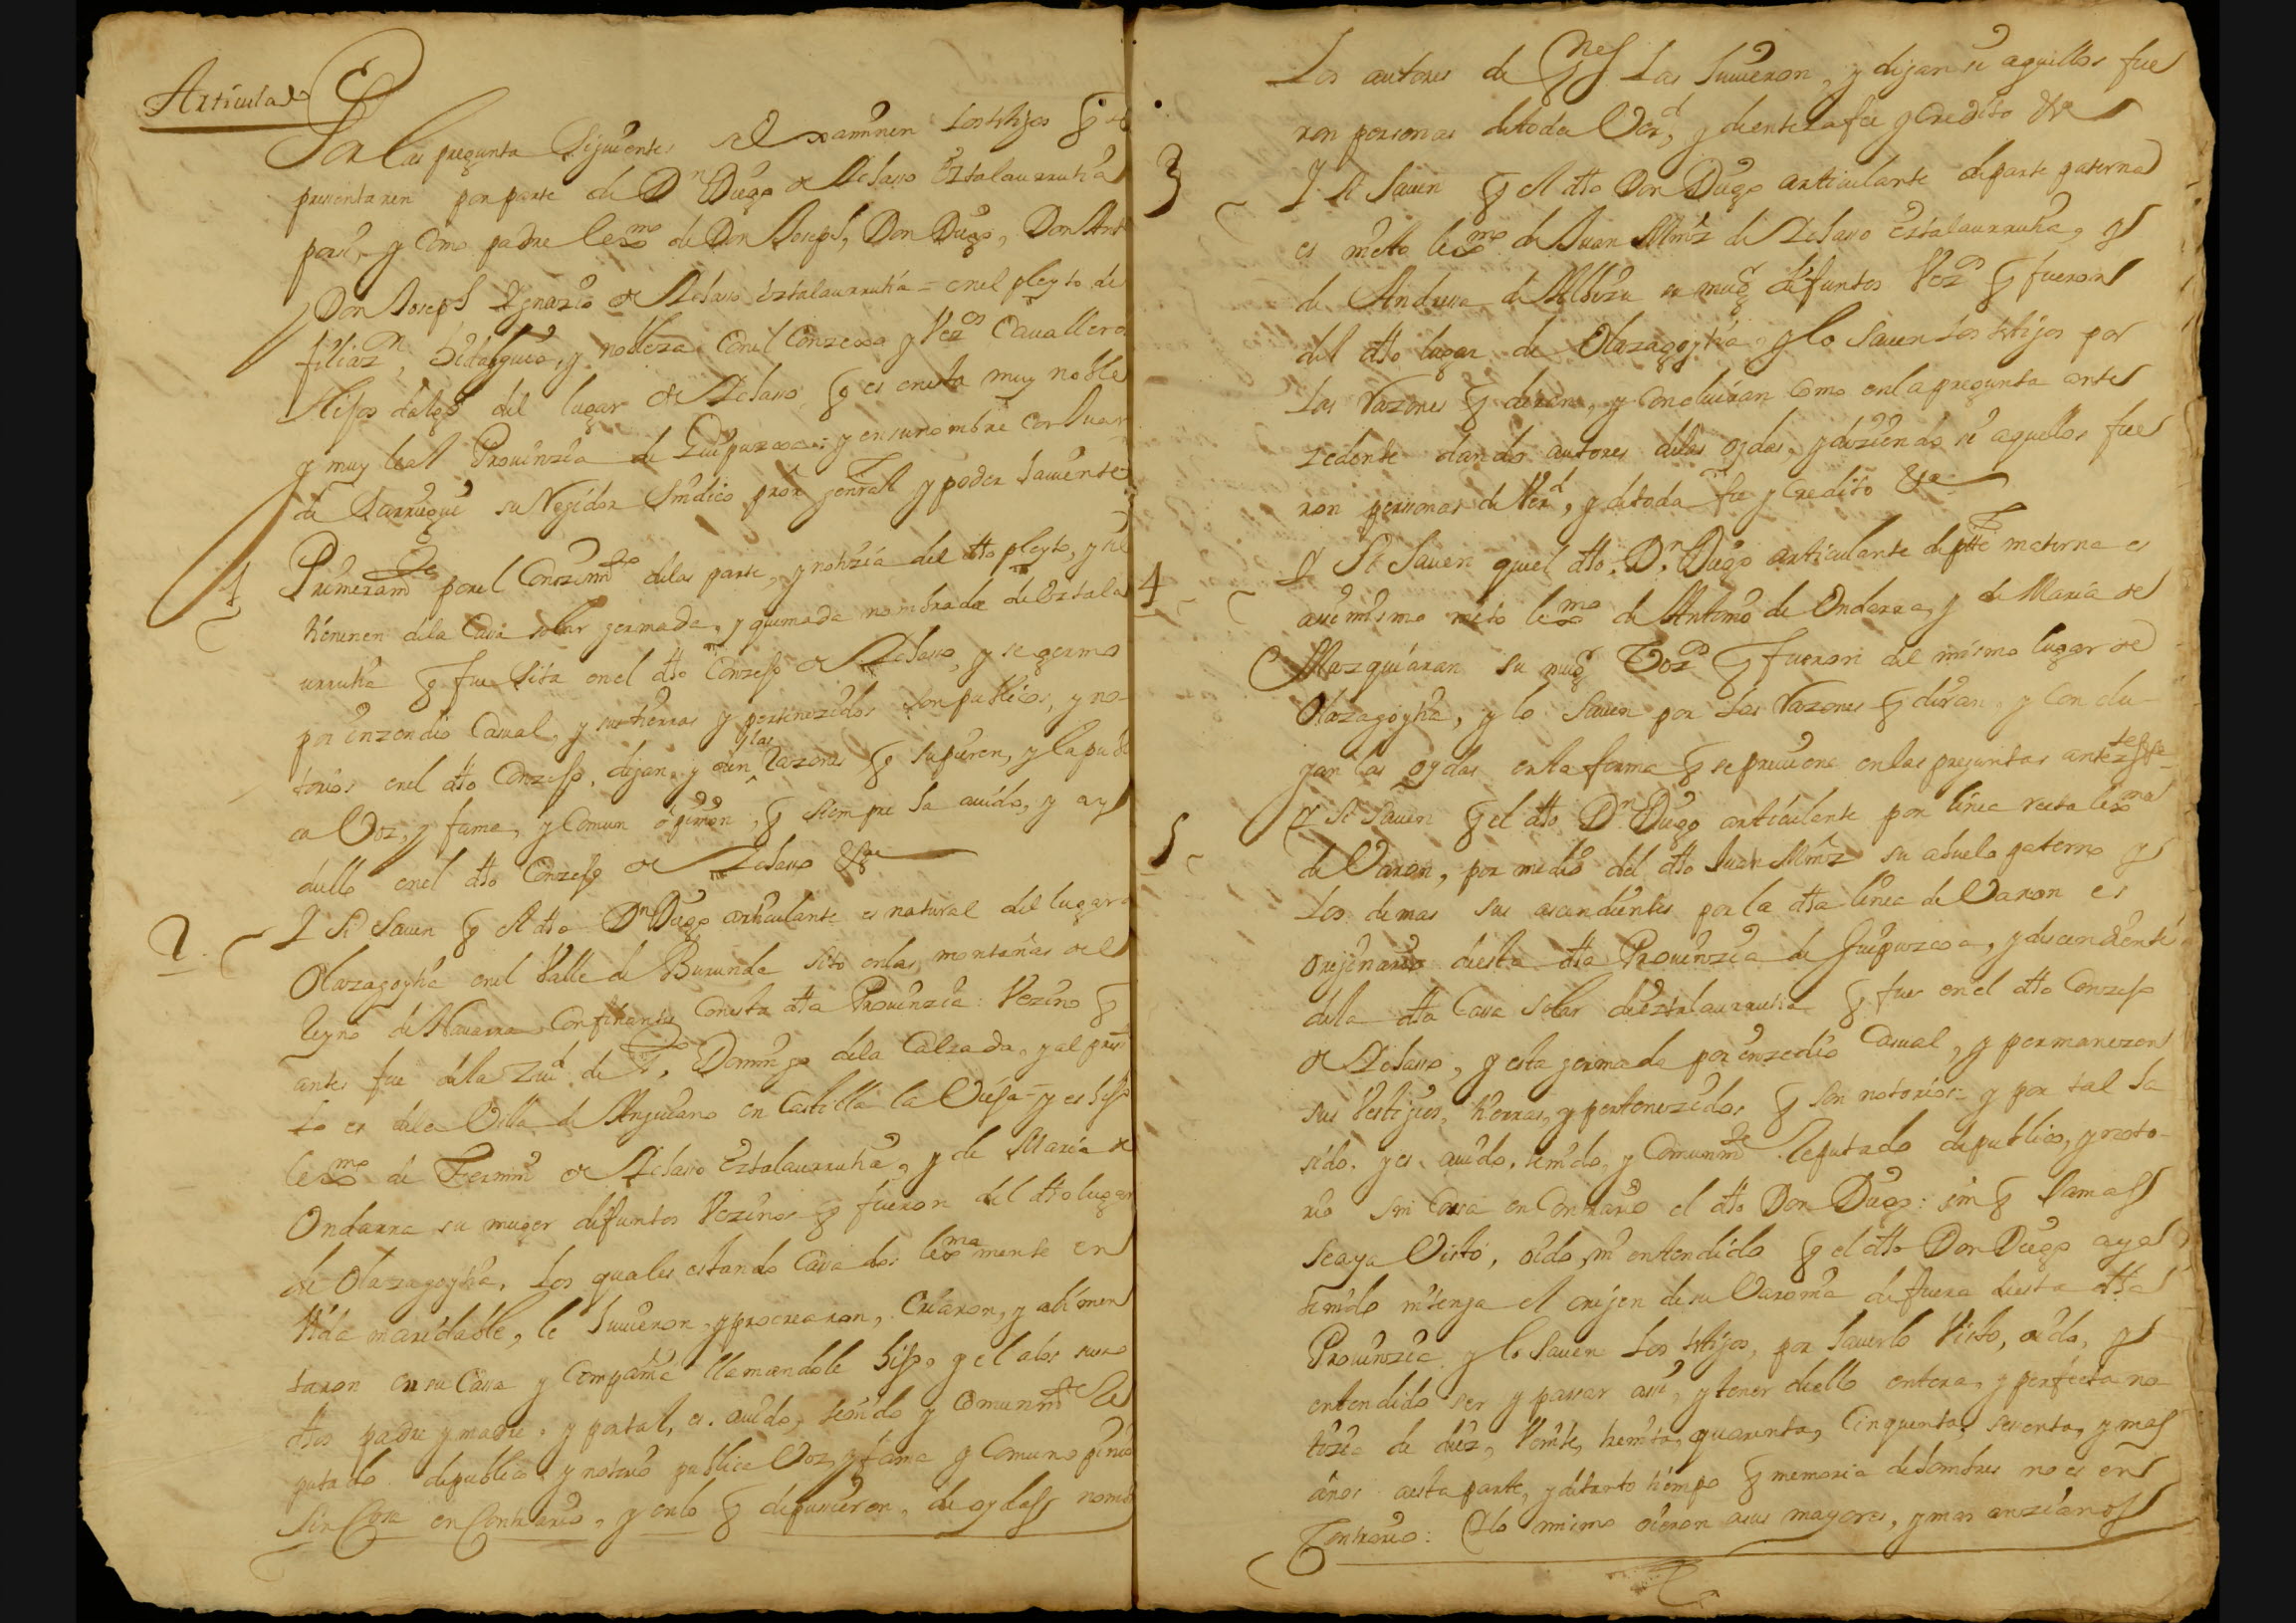 Articulado
Por las pregunta Siguientes se examinen los thigos q se
presentaren por parte de Dn Diego de Lesaso Estalaurruthia
por si, y como padre lexmo de Don Joseph, Don Diego, Don Ant
Don Joseph Ygnazio de Estalaurruthia = en el pleyto de
filiazn, hidalguia, y nobleza con el Conzexo y Vezos Cavalleros
Hijos dalgo del lugar de q es en esta muy noble
y muy leall Provinzia de Guipuzcoa: y en su nombre con Juan
de Larruegui su Regidor Sindico pror genrall y poder haviente
1 Primeramte por el Conozimto delas parte, y notizia del dho pleyto, y si
tienen dela Casa solar yermada, y quemada nombrada de Eztala
urrutia q fue sita en el dho Conzejo de y se yermo
por inzendio Casual, y sus tierras y pertenezidos son publicos, y no-
torios en el dho Conzejo, digan, y den y las Razones q supieren, y la publi
ca Voz, y fama, y comun opinion, q siempre ha avido, y ay
dello en el dho Conzejo de &a
2 Y Si Saven q el dho Dn Diego articulante es natural del lugar de
Olazagoythia en el Valle de Burunda sito en las montañas del
Reyno de Navarra Confinante Con esta dha Provinzia: Vezino q
antes fue dela Ziud de Sto Domingo dela Calzada, y al pres
te es dela Villa de Anguiano en Castilla la Vieja = y es hijo
lexmo de Fermin de Eztalaurruthia, y de Maria de
Ondarra su muger difuntos Vezinos q fueron del dho lugar
de Olazagoythia, los quales estando Casados lexmamente en
Vida maridable, le huvieron y procrearon, Criaron, y alimen
taron en su Casa y Compañia llamandole hijo, y el alos suso
dhos padre y madre, y por tal, es, avido, tenido y comunmte Re
putado de publico y notorio publica Voz, y fama y Comun opinion
Sin Cosa en Contrario, y en lo q depusieron, de oydas nomb
los autores de qnes las huvieron, y digan si aquellos fue
ron personas de toda Verd, y de entera fee y Credito &a
3 Y Si Saven q el dho Don Diego articulante de parte paterna
es nieto lexmo de Juan Mrnz de Eztalaurrutha, y
de Andresa de Albizu su mug difuntos Vezos q fueron
del dho lugar de Olazagoythia, y lo Saven los thigos por
las Razones q diran, y Concluiran Como en la pregunta ante
zedente dando autores delas oydas, y diziendo si aquellos fue
ron personas de Verd, y de toda fee y Credito &a
4 Y Si Saven que el dho Dn Diego articulante de pte materna es
assi mismo nieto lexmo de Antonio de Ondarra, y de Maria de
Mazquiaran su mug Vezos q fueron del mismo lugar de
Olazagoythia, y lo Saven por las Razones q diran, y Con clu-
yan las oydas en la forma q se previene en las preguntas antezedtes
5 Y Si Saven q el dho Dn Diego articulante por linea recta lexma
de Varon, por medio del dho Juan Mrnz su abuelo paterno y
los demas sus asendientes por la dha linea de Varon es
orijinario desta dha Provinzia de Guipuzcoa, y descendiente
dela dha Casa Solar de Eztalaurruthia q fue en el dho Conzejo
de y esta yermada por inzendio Casual, y permanezen
sus Vestigios, tierras, y pertenezidos q son notorios: y por tal ha
sido, y es, avido, tenido, y Comunmte Reputado de publico, y noto-
rio sin Cosa en Contrario el dho Don Diego: sin q Jamas
se aya Visto, oido, ni entendido q el dho Don Diego aya
tenido ni tenga el orijen de su Varonia de fuera desta dha
Provinzia, y lo Saven los thigos, por haverlo Visto, oido, y
entendido ser y passar assi, y tener dello entera, y perfecta no
tizia de diez, Veinte, treinta, quarenta, Cinquenta, sesenta, y mas
años a esta parte, y de tanto tiempo q memoria de hombres no es en
Contrario: Y lo mismo oieron a sus mayores, y mas anzianos